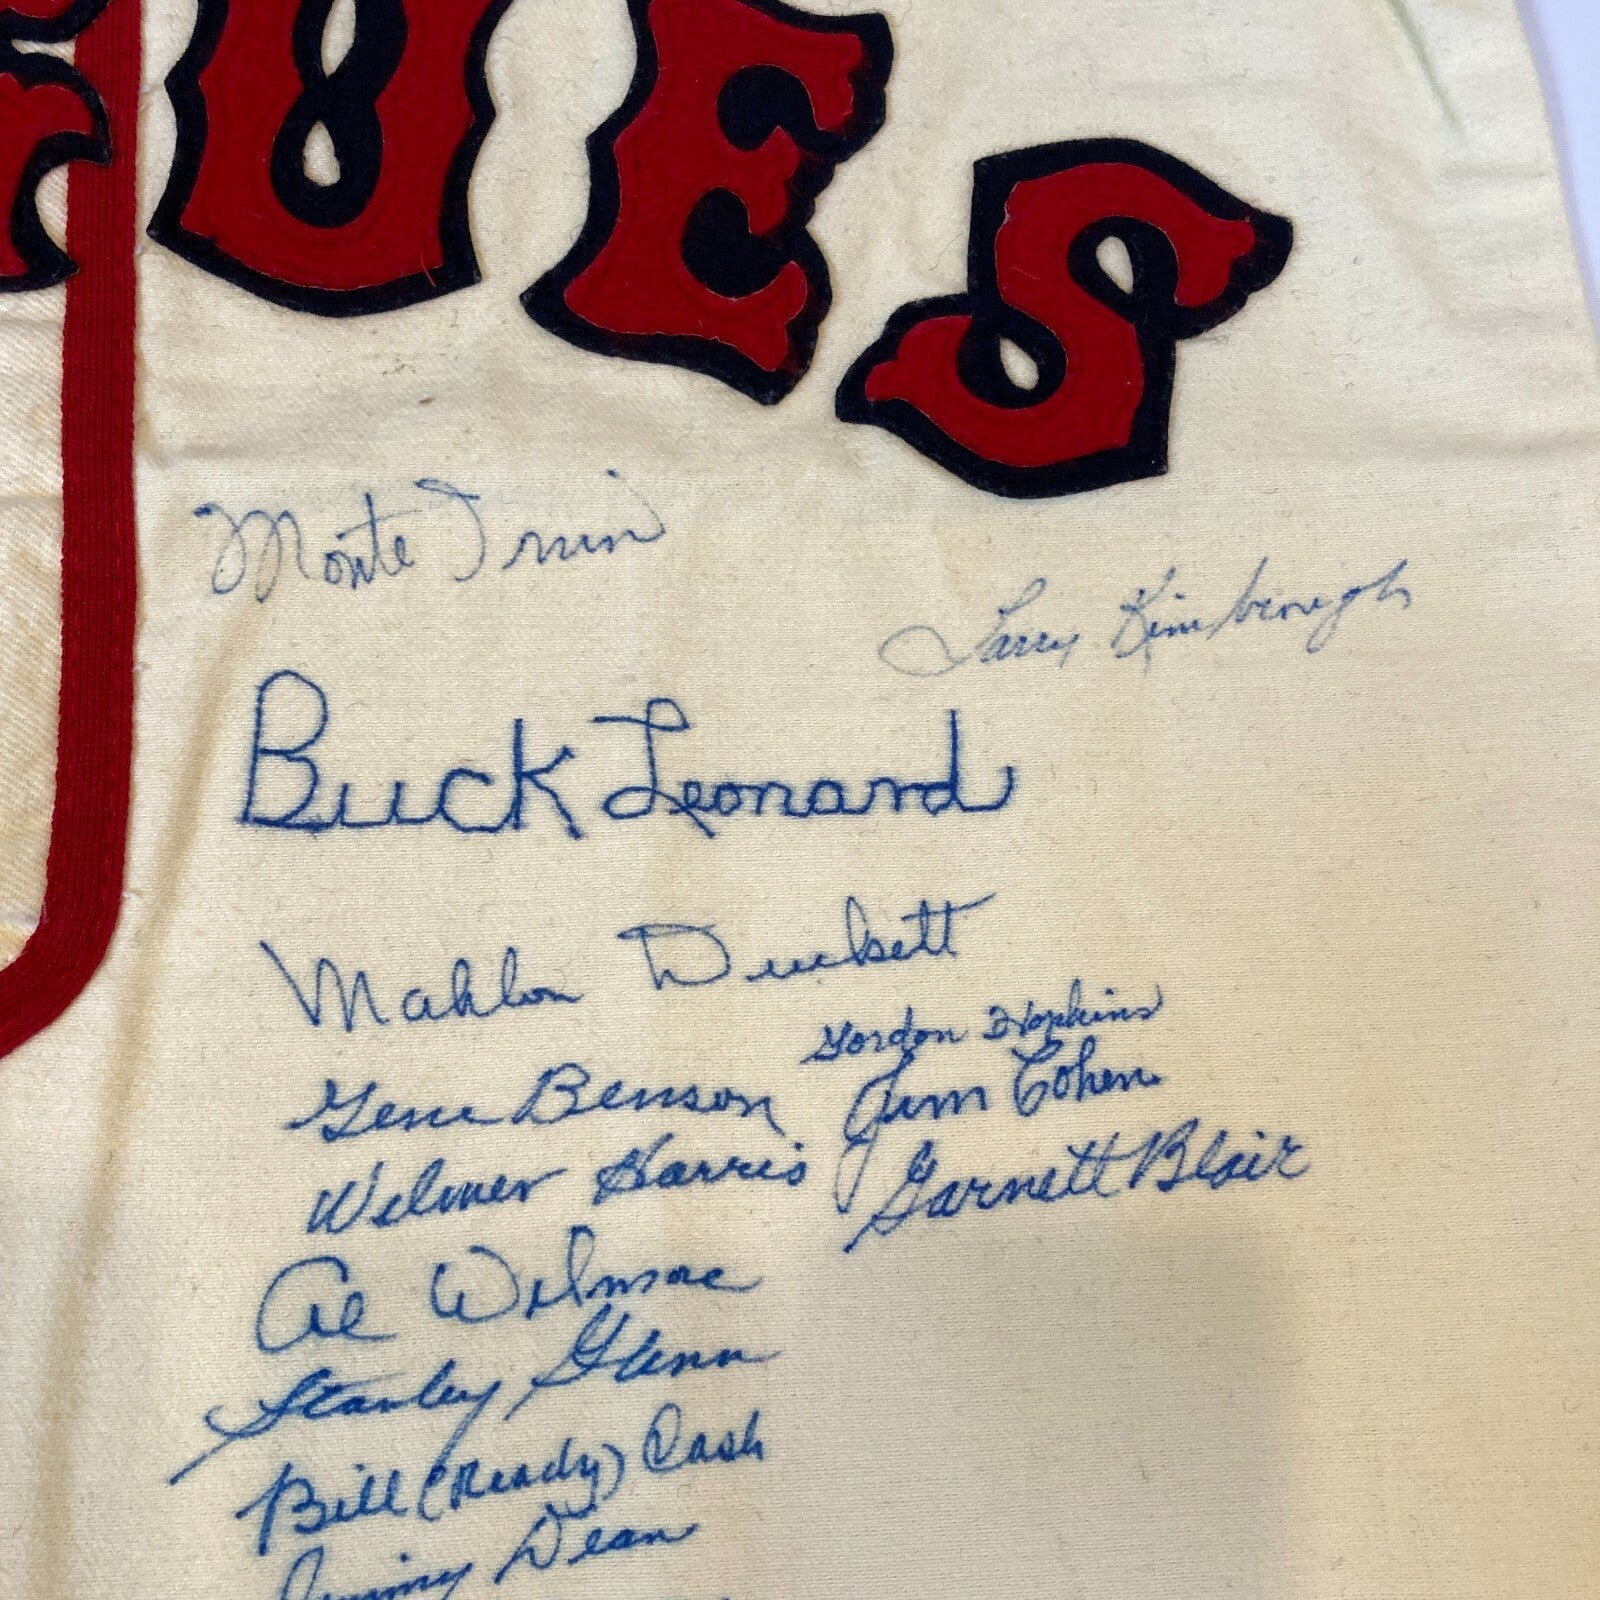 UES
Monte Irvin
Larry Kimbrough
Buck Leonard
Mahlon Duckett
Gordon Hopkins
Gene Benson
Jim Cohen
Wilmer Harris
Garnett Blair
Al Wilmore
Stanley Glenn
Bill (Ready) Cash
Jimmy Dean